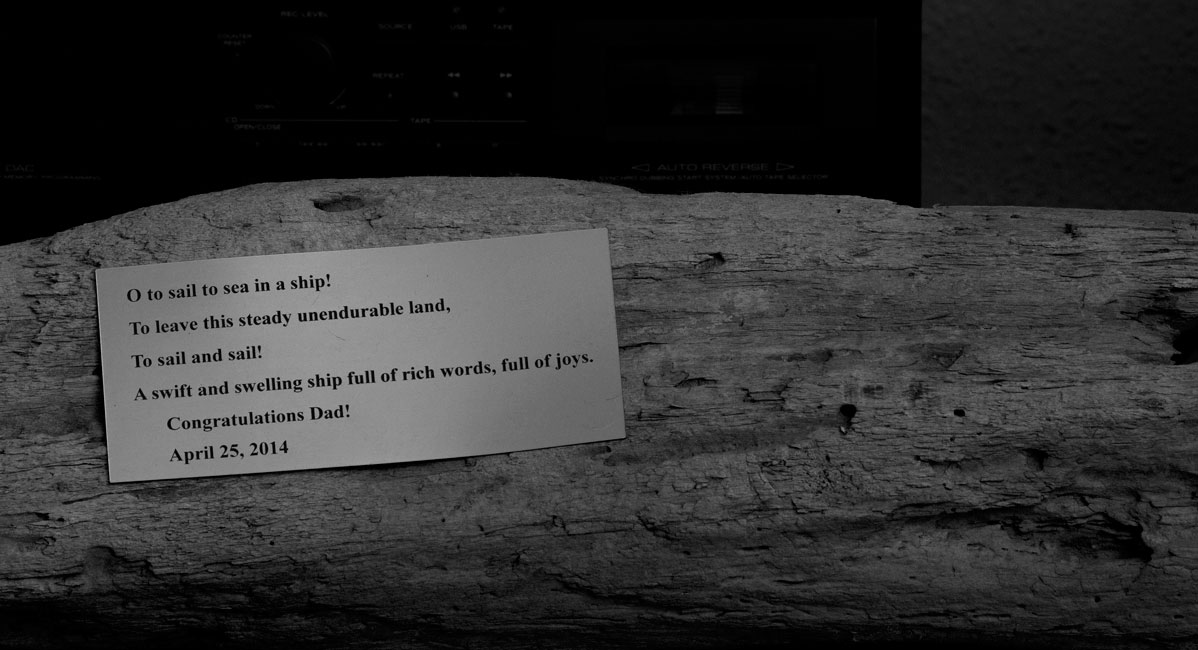 REC LEVEL
COUNTER
RESET
SOURCE
USB
TAPE
REPEAT
DOWN
CD
TAPE
OPEN/CLOSE
DAC
AUTO REVERSE
SYNCHRO DUBBING START SYSTEM/AUTO TAPE SELECTOR
O to sail to sea in a ship!
To leave this steady unendurable land,
To sail and sail!
A swift and swelling ship full of rich words, full of joys.
Congratulations Dad!
April 25, 2014